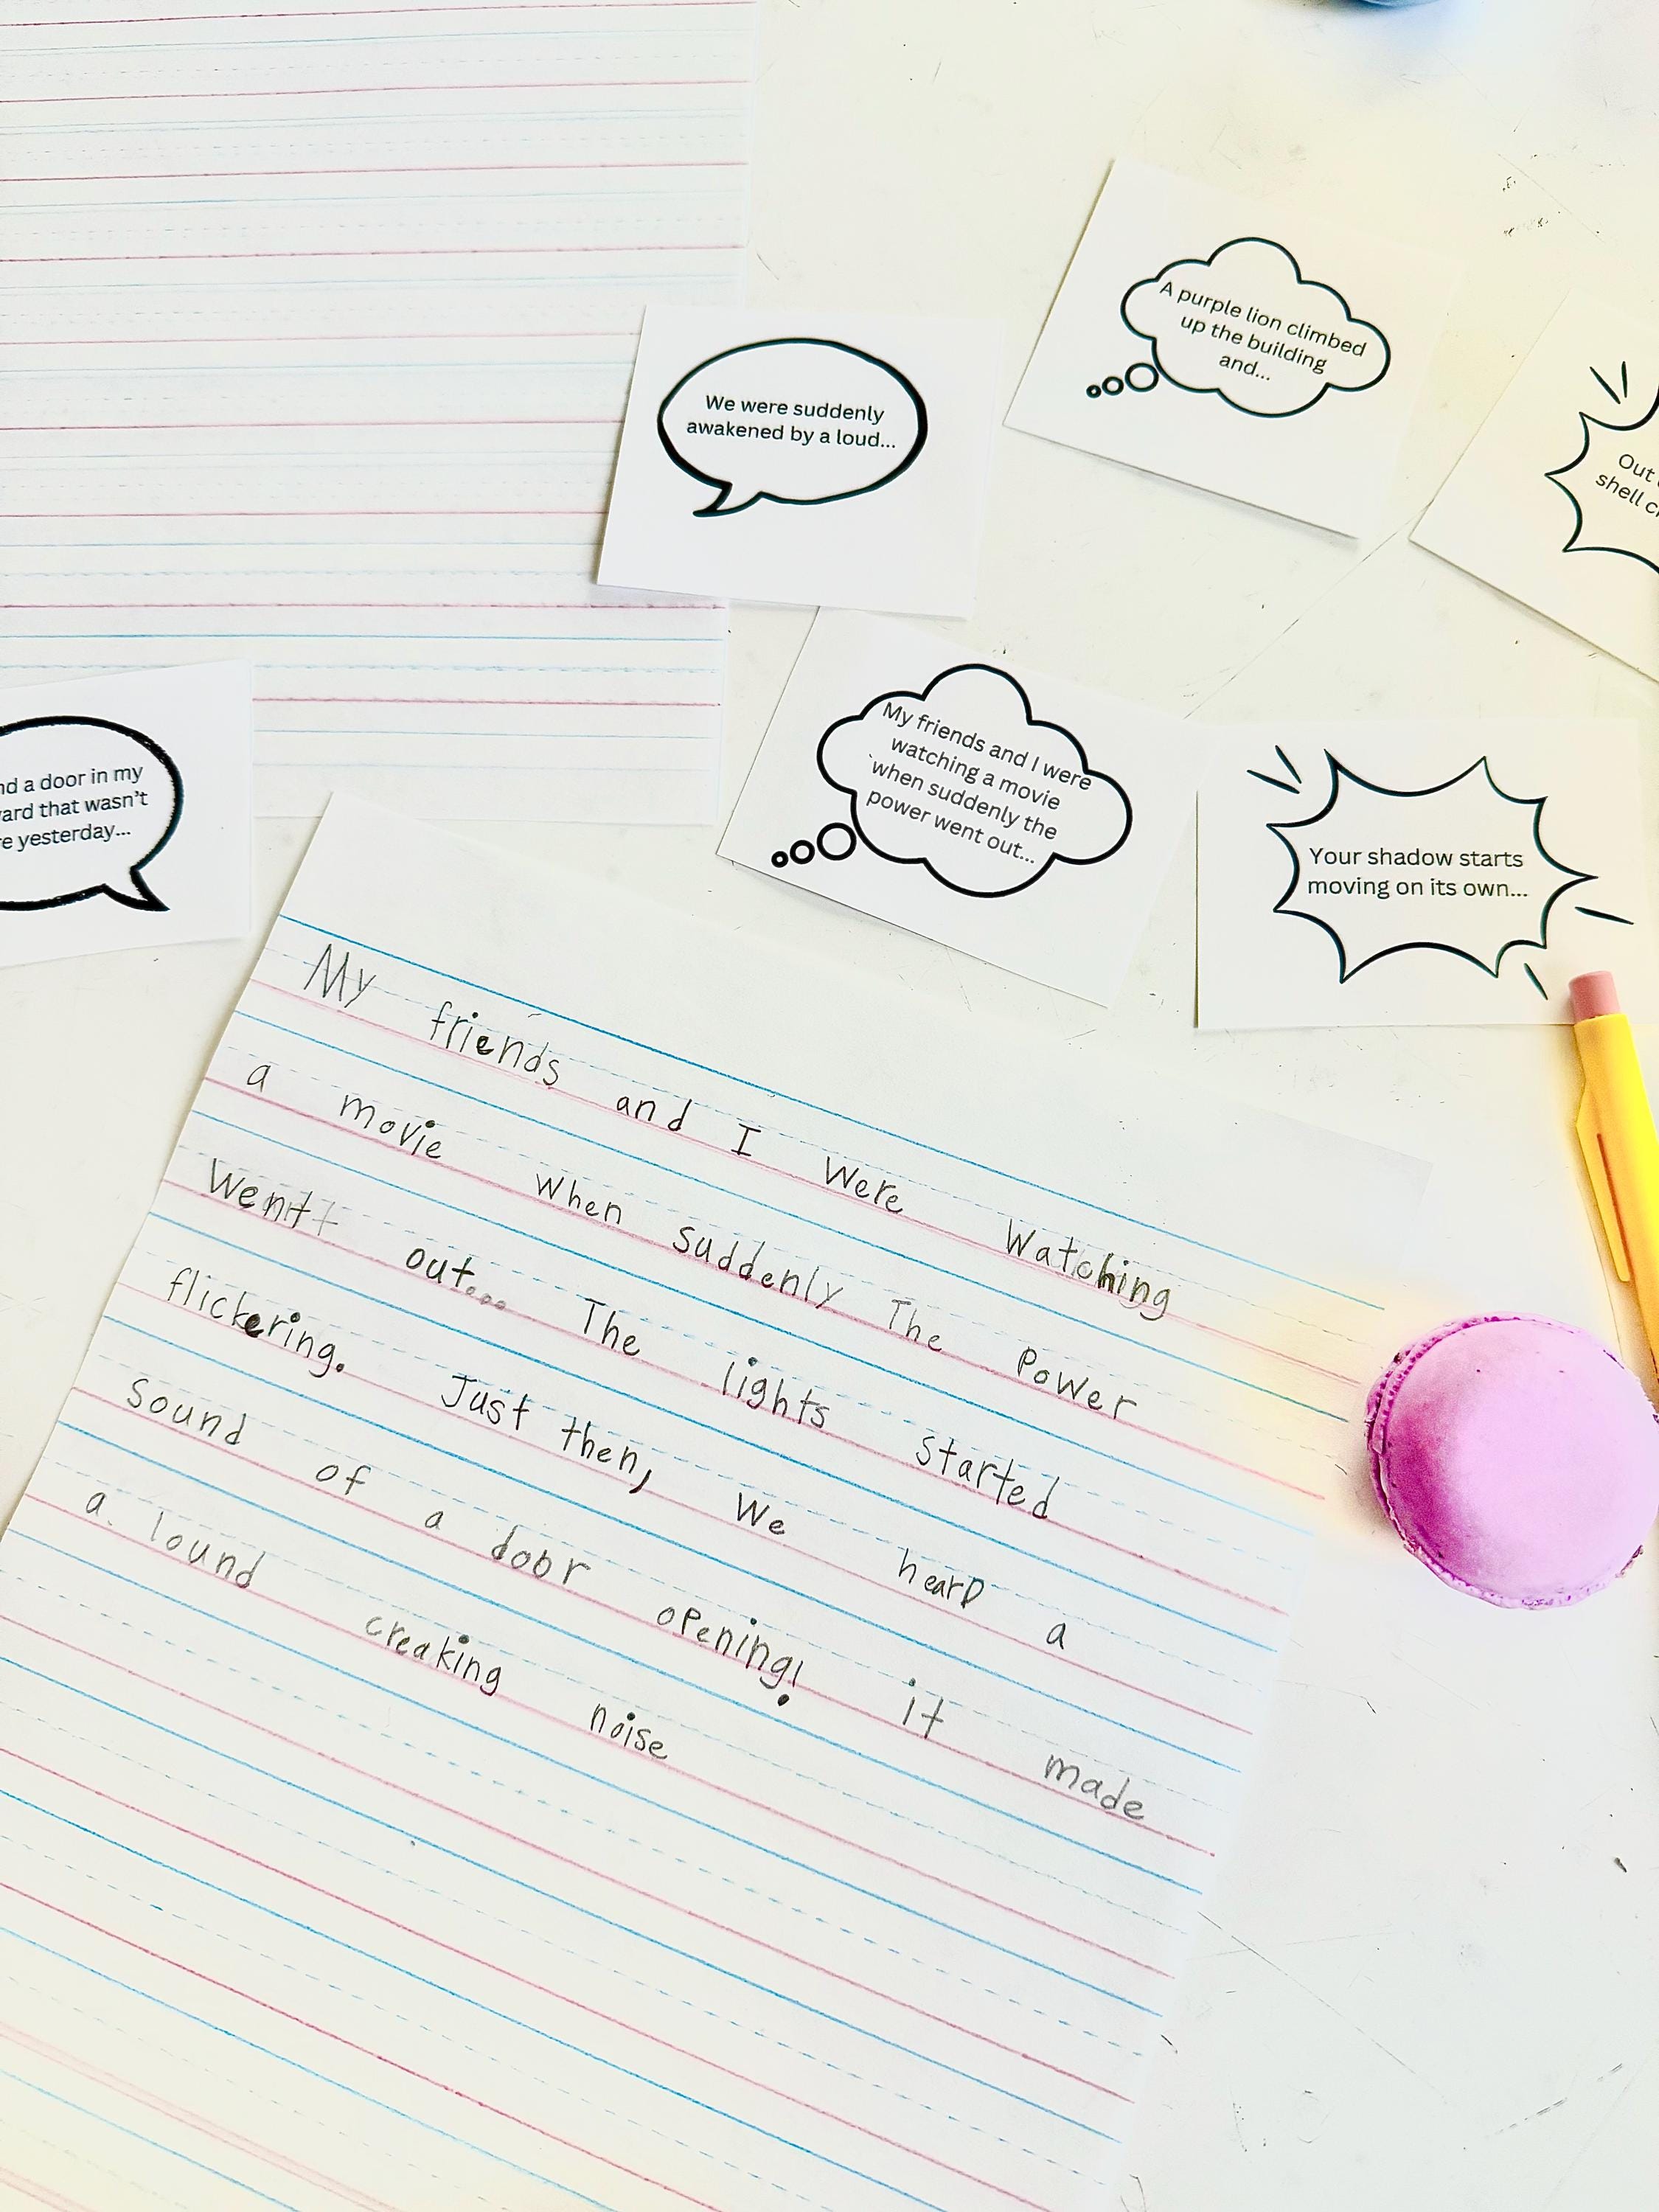 A purple lion climbed
up the building
and...
We were suddenly
awakened by a loud...
Out
shell
My friends and I were
watching a movie
when suddenly the
power went out...
a door in my
that wasn't
yesterday...
Your shadow starts
moving on its own...
My friends and I Were Watching
a movie when suddenly The Power
Went out... The lights started
flickering. Just then, We heard a
Sound of a door opening! it made
a lound creaking noise